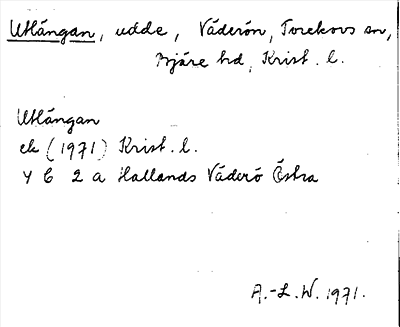 Utlängan, udde, Väderön, Torekovs sn,
Bjäre hd, Krist. l.
Utlängan
ek (1971) Krist. l.
4 C 2 a Hallands Väderö Östra
A.-L.W. 1971.